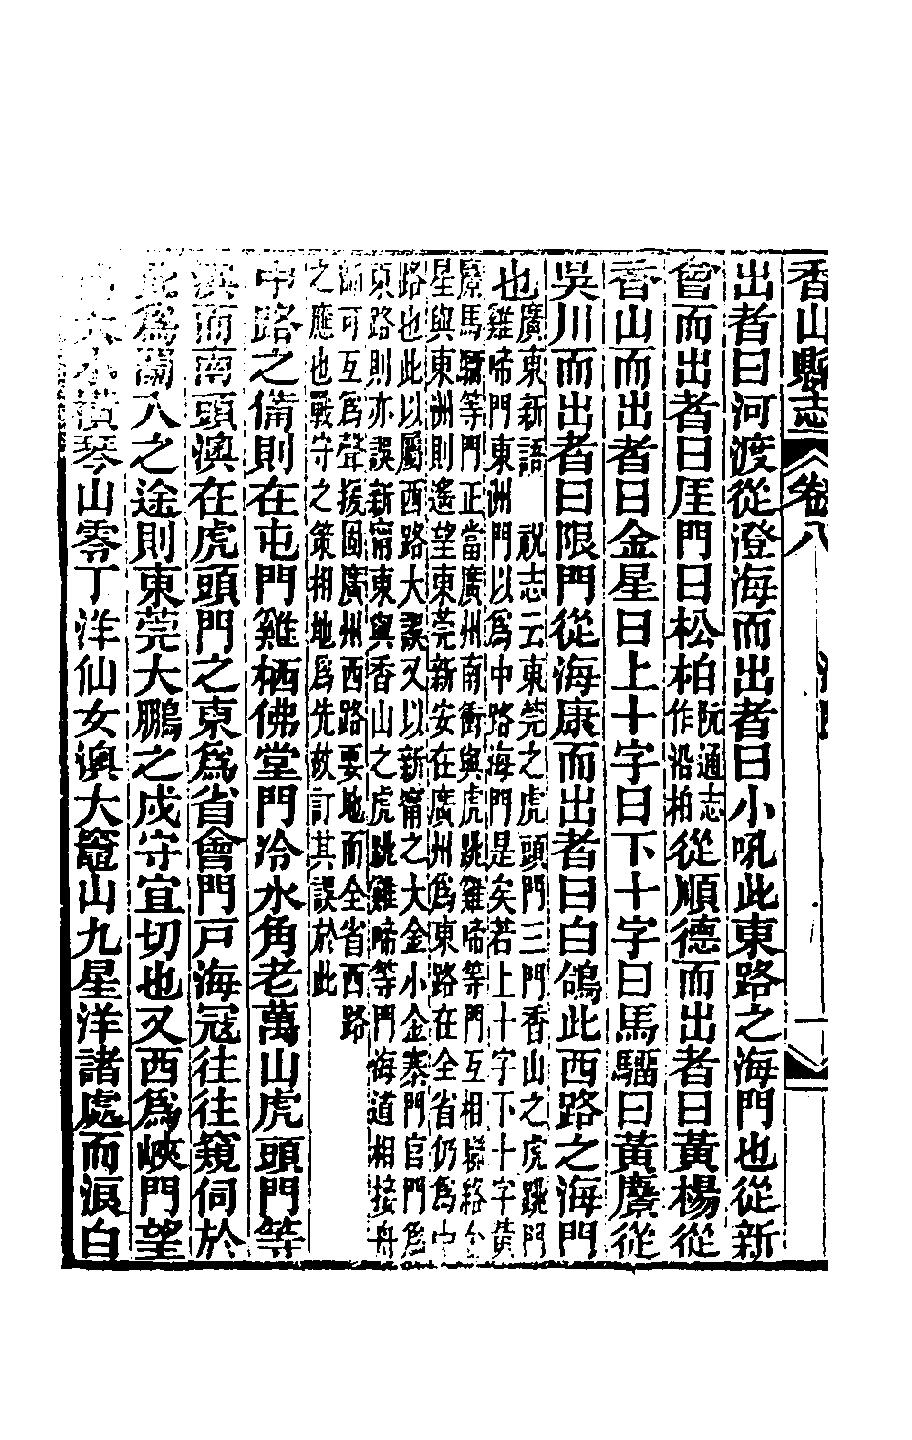 香山縣志 卷八 一
出者曰河渡從澄海而出者曰小吼此東路之海門也從新
會而出者曰厓門曰松柏阮通志作沿柏從順德而出者曰黃楊從
香山而出者曰金星曰上十字曰下十字曰馬騮曰黃麖從
吳川而出者曰限門從海康而出者曰白鴿此西路之海門
也廣東新語 祝志云東莞之虎頭門三門香山之虎跳門
雞啼門東洲門以爲中路海門是矣若上十字下十字黃
麖馬騮等門正當廣州南衝與虎跳雞啼等門互相聯絡金
星與東洲則遙望東莞新安在廣州爲東路在全省仍爲中
路也此以屬西路大誤又以新甯之大金小金寨門官門爲
東路則亦誤新甯東與香山之虎跳雞啼等門海道相接舟
師可互爲聲援固廣州西路要地而全省西路
之應也戰守之策相地爲先故訂其誤於此
中路之備則在屯門雞栖佛堂門冷水角老萬山虎頭門等
澳而南頭澳在虎頭門之東爲省會門戸海寇往往窺伺於
此爲闌入之途則東莞大鵬之戍守宜切也又西爲峽門望
大小橫琴山零丁洋仙女澳大竈山九星洋諸處而浪白